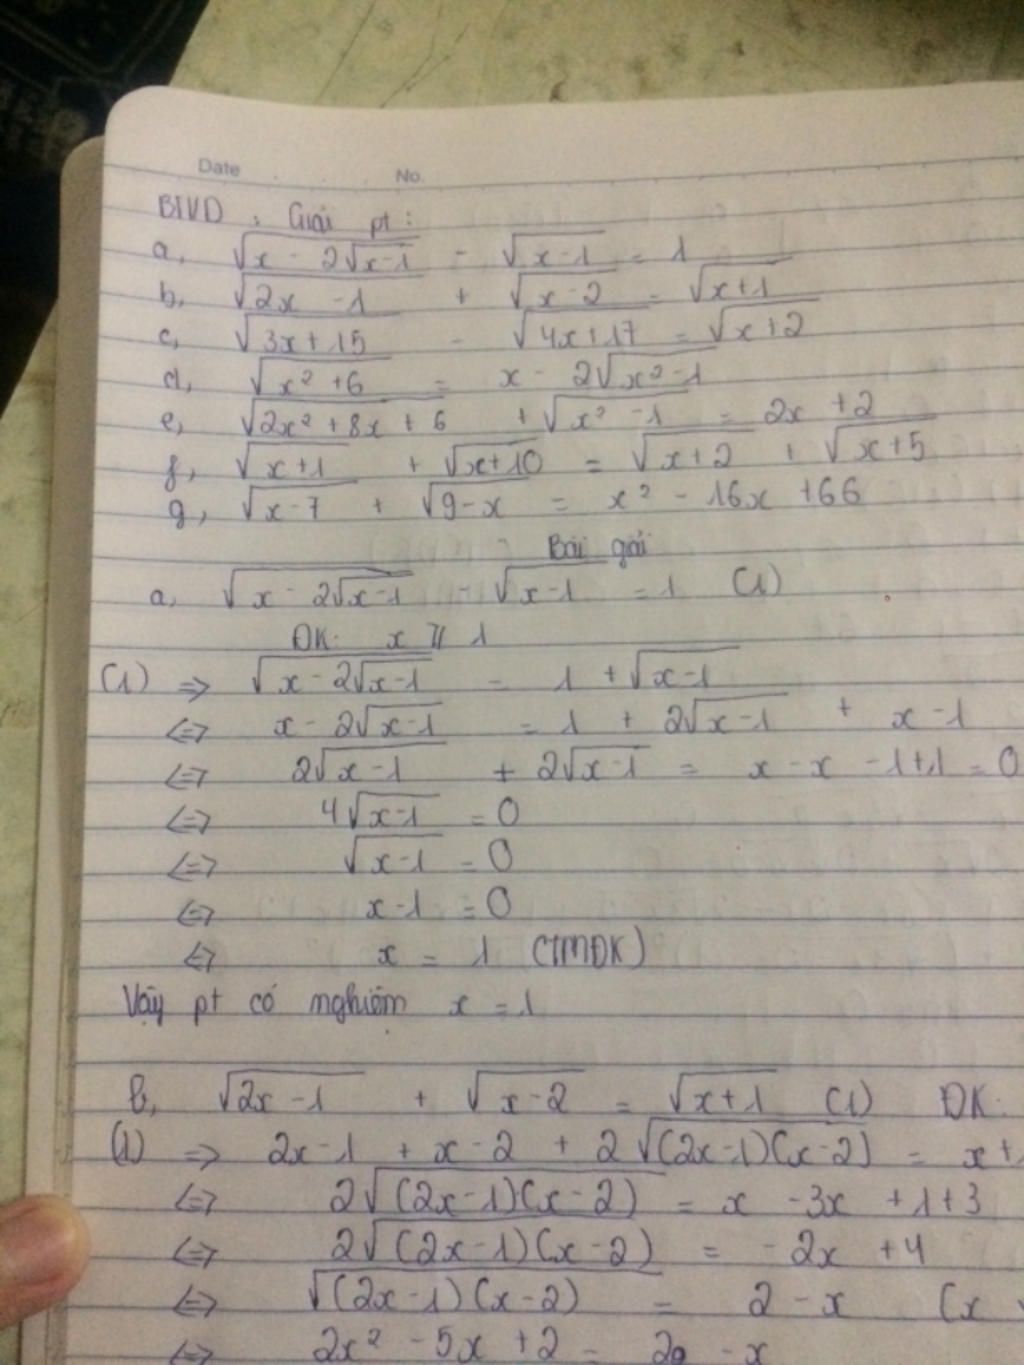 Date No.
BTVD : Giải pt :
a, √(x - 2√(x-1)) - √(x-1) = 1
b, √(2x - 1) + √(x-2) = √(x+1)
c, √(3x+15) - √(4x+17) = √(x+2)
d, √(x² +6) = x - 2√(x²-1)
e, √(2x² + 8x + 6) + √(x² - 1) = 2x + 2
f, √(x+1) + √(x+10) = √(x+2) + √(x+5)
g, √(x-7) + √(9-x) = x² - 16x + 66
Bài giải
a, √(x - 2√(x-1)) - √(x-1) = 1 (1)
ĐK: x ≥ 1
(1) => √(x - 2√(x-1)) = 1 + √(x-1)
<=> x - 2√(x-1) = 1 + 2√(x-1) + x - 1
<=> 2√(x-1) + 2√(x-1) = x - x - 1+1 = 0
<=> 4√(x-1) = 0
<=> √(x-1) = 0
<=> x-1 = 0
<=> x = 1 (TMĐK)
Vậy pt có nghiệm x = 1
b, √(2x-1) + √(x-2) = √(x+1) (1) ĐK:
(1) => 2x-1 + x-2 + 2√((2x-1)(x-2)) = x+
<=> 2√((2x-1)(x-2)) = x - 3x + 1+3
<=> 2√((2x-1)(x-2)) = -2x + 4
<=> √((2x-1)(x-2)) = 2 - x (x
<=> 2x² - 5x + 2 = - x